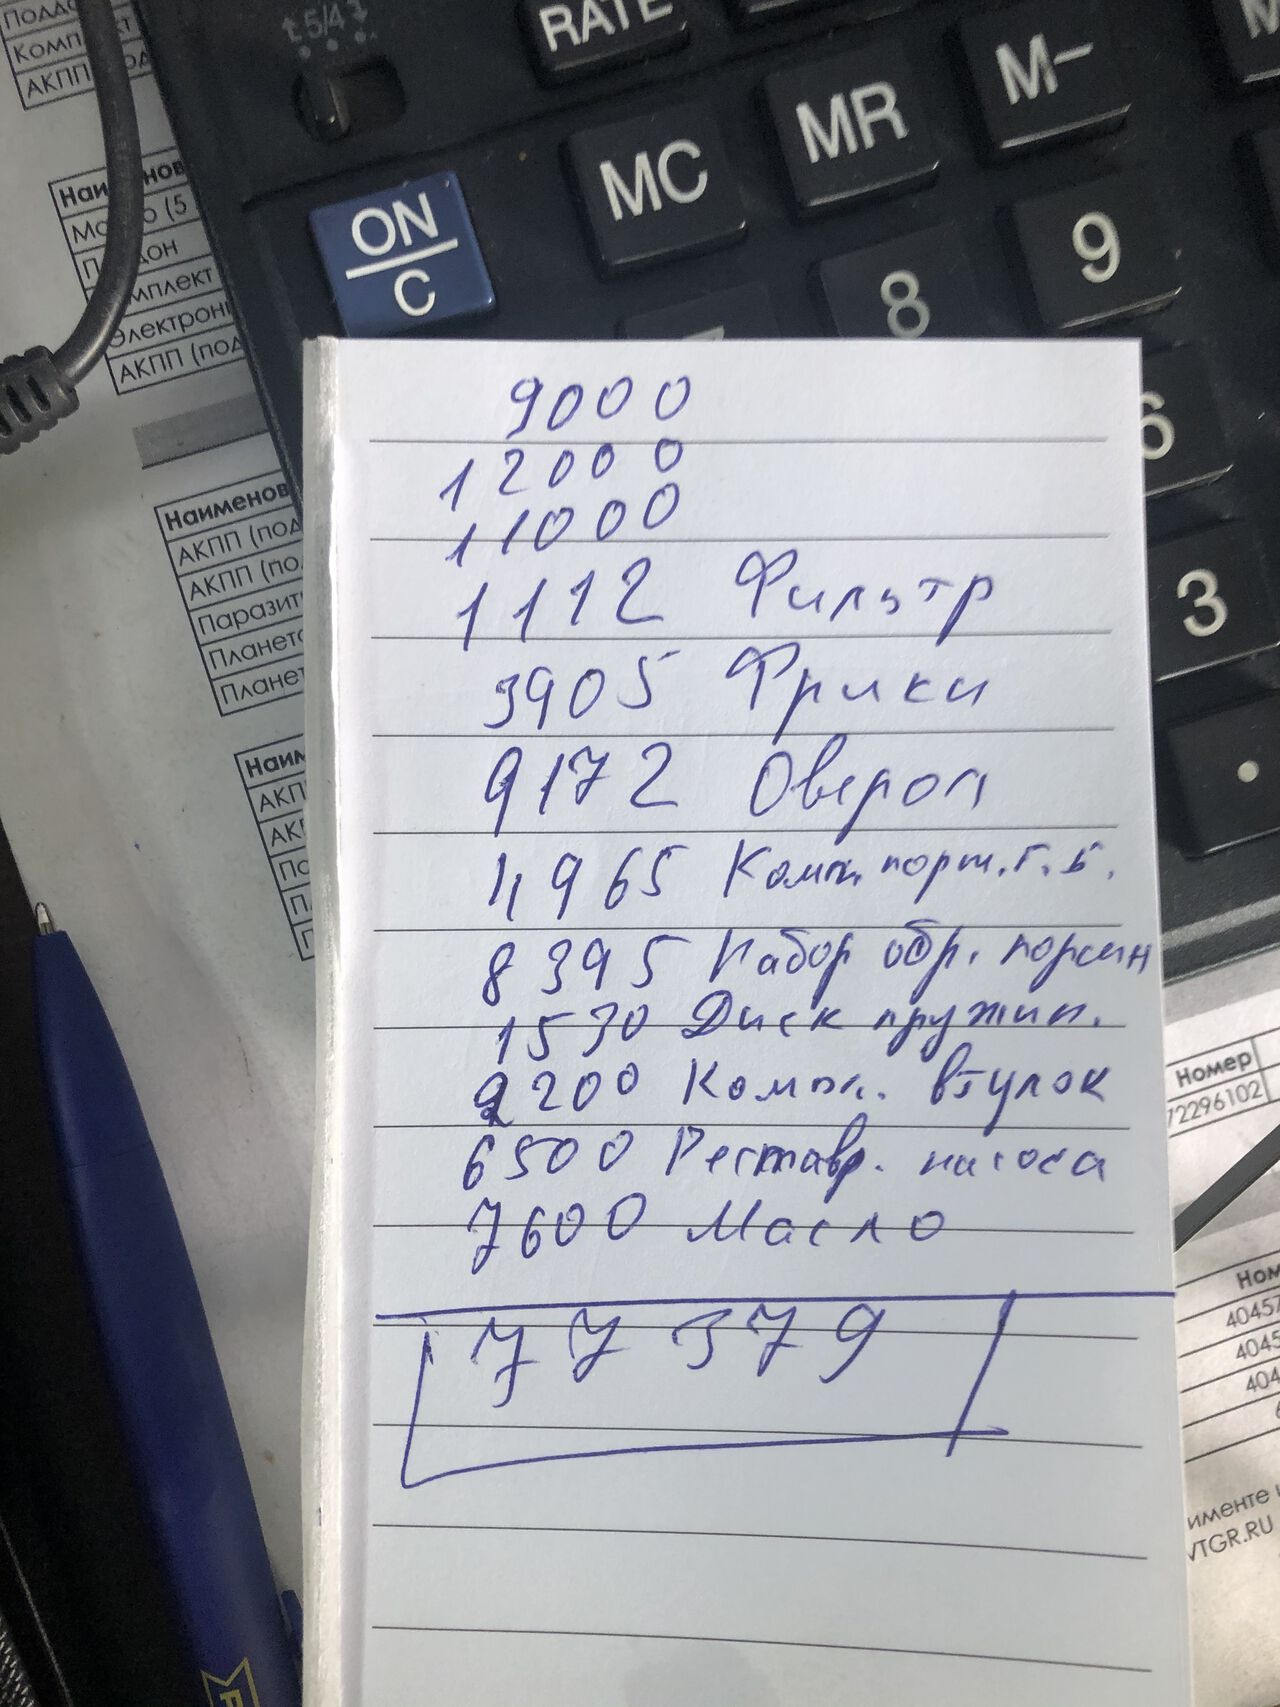 5/4
RATE
MC
MR
M-
ON
C
8
9
6
3
АКПП
Комп
Наименов
Электрон
АКПП (под
Наименов
АКПП (под
АКПП (по
Паразит
Планет
Планет
9000
12000
11000
1112 Фильтр
3905 Фрики
9172 Оверол
4965 Комп. порш. г.б.
8395 Набор обр. поршн
1530 Диск пружин.
2200 Компл. втулок
6500 Реставр. насоса
7600 Масло
77379
Номер
72296102
Ном
4045
именте
VTGR.RU